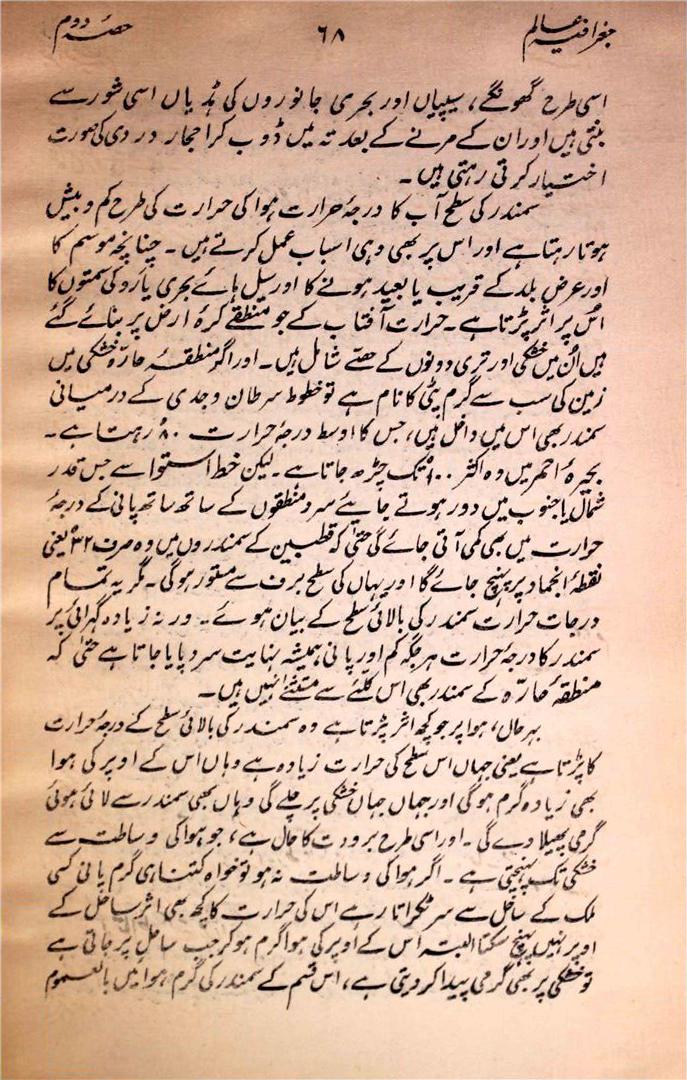 جغرافیہ عالم ۶۸ حصہ دوم
اسی طرح گھونگے، سیپیاں اور بحری جانوروں کی ہڈیاں اسی شورے
بنتی ہیں اور ان کے مرنے کے بعد تہ میں ڈوب کر احجار دردی کی صورت
اختیار کرتی رہتی ہیں۔
سمندر کی سطح آب کا درجۂ حرارت ہوا کی حرارت کی طرح کم و بیش
ہوتا رہتا ہے اور اس پر بھی وہی اسباب عمل کرتے ہیں۔ چنانچہ موسم کا
اور عرض بلد کے قریب یا بعید ہونے کا اور سیل ہائے بحری یا رو کی سمتوں کا
اس پر اثر پڑتا ہے۔ حرارت آفتاب کے جو منطقے کرۂ ارض پر بنائے گئے
ہیں اُن میں خشکی اور تری دونوں کے حصے شامل ہیں۔ اور اگر منطقۂ حارّہ خشکی میں
زمین کی سب سے گرم پٹی کا نام ہے تو خطوط سرطان و جدی کے درمیانی
سمندر بھی اس میں داخل ہیں، جس کا اوسط درجۂ حرارت ۸۰ رہتا ہے۔
بحیرۂ احمر میں وہ اکثر ۱۰۰ تک چڑھ جاتا ہے۔ لیکن خط استوا سے جس قدر
شمال یا جنوب میں دور ہوتے جایئے سرد منطقوں کے ساتھ ساتھ پانی کے درجۂ
حرارت میں بھی کمی آتی جائے گی حتیٰ کہ قطبین کے سمندروں میں وہ صرف ۳۲ یعنی
نقطۂ انجماد پر پہنچ جائے گا اور یہاں کی سطح برف سے مستور ہوگی۔ مگر یہ تمام
درجات حرارت سمندر کی بالائی سطح کے بیان ہوئے۔ ورنہ زیادہ گہرائی پر
سمندر کا درجۂ حرارت ہر جگہ کم اور پانی ہمیشہ نہایت سرد پایا جاتا ہے حتیٰ کہ
منطقۂ حارّہ کے سمندر بھی اس کلّئے سے مستثنےٰ نہیں ہیں۔
بہر حال، ہوا پر جو کچھ اثر پڑتا ہے وہ سمندر کی بالائی سطح کے درجۂ حرارت
کا پڑتا ہے یعنی جہاں اس سطح کی حرارت زیادہ ہے وہاں اس کے اوپر کی ہوا
بھی زیادہ گرم ہوگی اور جہاں جہاں خشکی پر چلے گی وہاں بھی سمندر سے لائی ہوئی
گرمی پھیلا دے گی۔ اور اسی طرح برودت کا حال ہے، جو ہوا کی وساطت سے
خشکی تک پہنچتی ہے۔ اگر ہوا کی وساطت نہ ہو تو خواہ کتنا ہی گرم پانی کسی
ملک کے ساحل سے سر ٹکراتا رہے اس کی حرارت کا کچھ بھی اثر ساحل کے
اوپر نہیں پہنچ سکتا البتہ اس کے اوپر کی ہوا گرم ہو کر جب ساحل پر جاتی ہے
تو خشکی پر بھی گرمی پیدا کر دیتی ہے، اس قسم کے سمندر کی گرم ہوا میں بالعموم